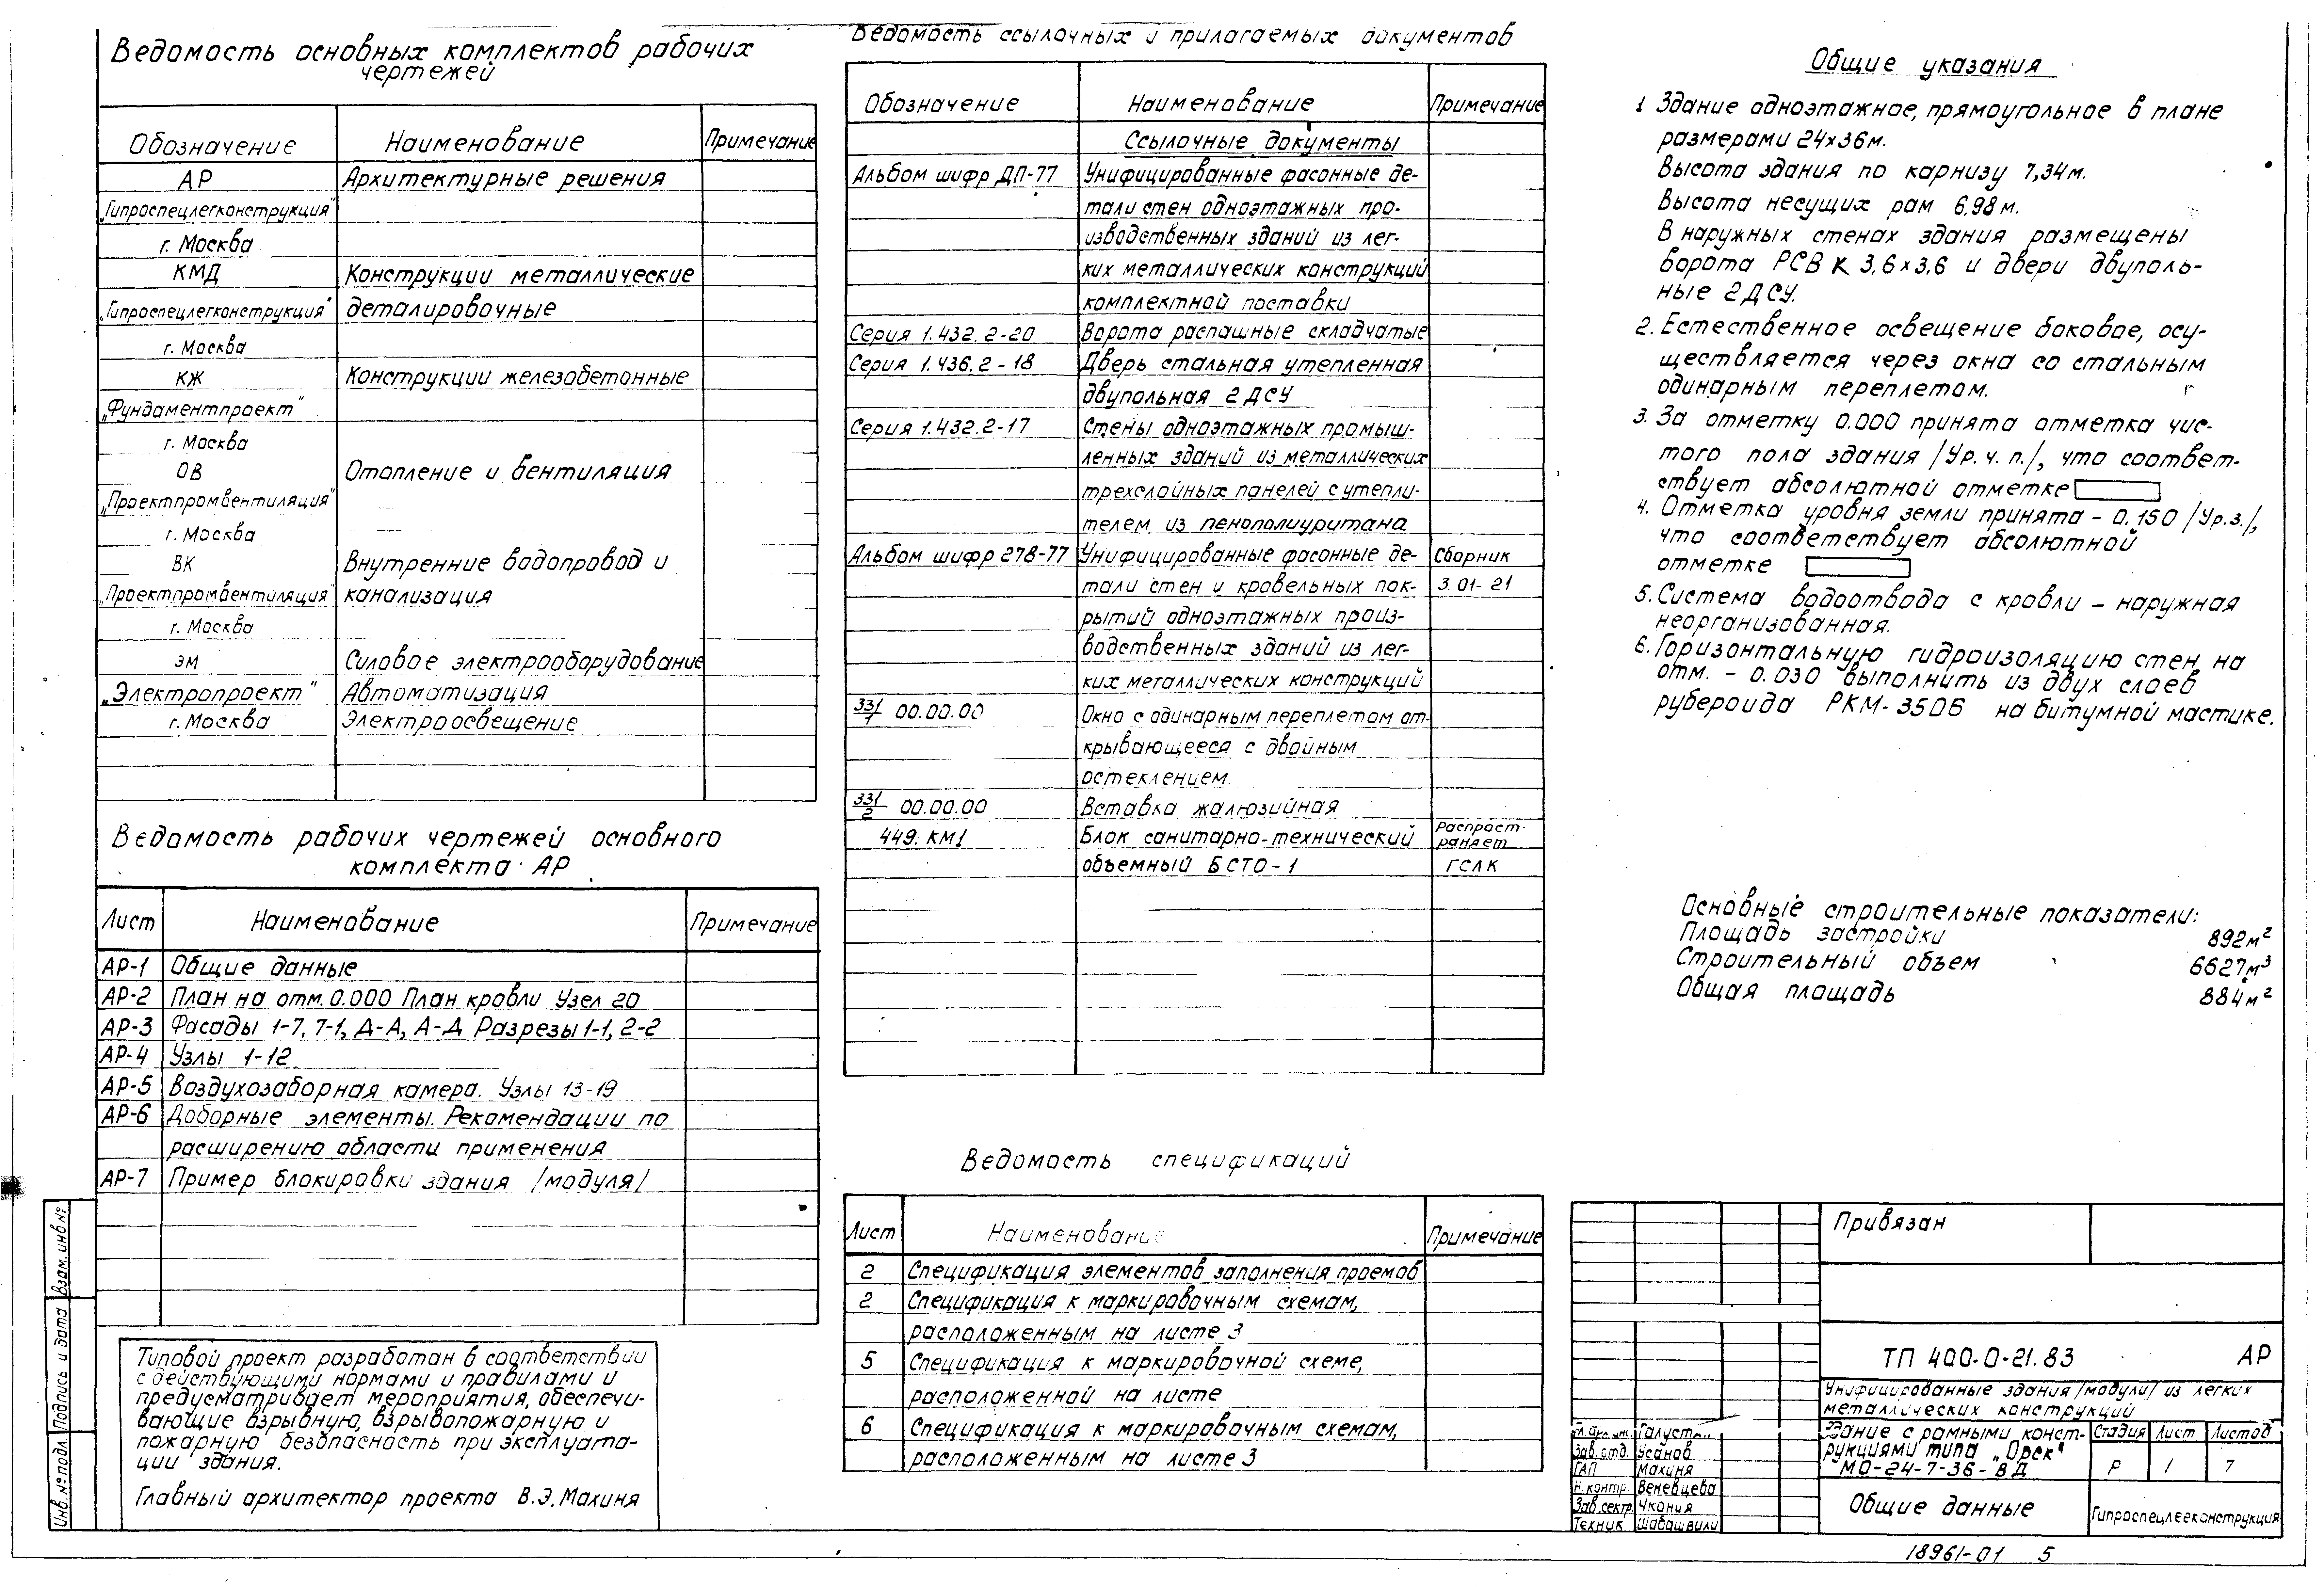 Ведомость основных комплектов рабочих
чертежей
Обозначение Наименование Примечание
АР Архитектурные решения
„Гипроспецлегконструкция"
г. Москва
КМД Конструкции металлические
„Гипроспецлегконструкция" деталировочные
г. Москва
КЖ Конструкции железобетонные
„Фундаментпроект"
г. Москва
ОВ Отопление и вентиляция
„Проектпромвентиляция"
г. Москва
ВК Внутренние водопровод и
„Проектпромвентиляция" канализация
г. Москва
ЭМ Силовое электрооборудование
„Электропроект" Автоматизация
г. Москва Электроосвещение
Ведомость рабочих чертежей основного
комплекта АР
Лист Наименование Примечание
АР-1 Общие данные
АР-2 План на отм. 0.000 План кровли Узел 20
АР-3 Фасады 1-7, 7-1, Д-А, А-Д Разрезы 1-1, 2-2
АР-4 Узлы 1-12
АР-5 Воздухозаборная камера. Узлы 13-19
АР-6 Доборные элементы. Рекомендации по
расширению области применения
АР-7 Пример блокировки здания /модуля/
Типовой проект разработан в соответствии
с действующими нормами и правилами и
предусматривает мероприятия, обеспечи-
вающие взрывную, взрывопожарную и
пожарную безопасность при эксплуата-
ции здания.
Главный архитектор проекта В.Э. Махиня
Взам. инв №
Подпись и дата
Инв. № подл.
Ведомость ссылочных и прилагаемых документов
Обозначение Наименование Примечание
Ссылочные документы
Альбом шифр ДП-77 Унифицированные фасонные де-
тали стен одноэтажных про-
изводственных зданий из лег-
ких металлических конструкций
комплектной поставки
Серия 1.432.2-20 Ворота распашные складчатые
Серия 1.436.2-18 Дверь стальная утепленная
двупольная 2 ДСУ
Серия 1.432.2-17 Стены одноэтажных промыш-
ленных зданий из металлических
трехслойных панелей с утепли-
телем из пенополиуритана
Альбом шифр 278-77 Унифицированные фасонные де- Сборник
тали стен и кровельных пок- 3.01-21
рытий одноэтажных произ-
водственных зданий из лег-
ких металлических конструкций
331/1 00.00.00 Окно с одинарным переплетом от-
крывающееся с двойным
остеклением.
331/2 00.00.00 Вставка жалюзийная
449. КМ1 Блок санитарно-технический Распрост-
раняет
объемный БСТО-1 ГСЛК
Ведомость спецификаций
Лист Наименование Примечание
2 Спецификация элементов заполнения проемов
2 Спецификация к маркировочным схемам,
расположенным на листе 3
5 Спецификация к маркировочной схеме,
расположенной на листе
6 Спецификация к маркировочным схемам,
расположенным на листе 3
Общие указания
1 Здание одноэтажное, прямоугольное в плане
размерами 24х36м.
Высота здания по карнизу 7,34м.
Высота несущих рам 6,98м.
В наружных стенах здания размещены
ворота РСВ К 3,6×3,6 и двери двуполь-
ные 2 ДСУ.
2. Естественное освещение боковое, осу-
ществляется через окна со стальным
одинарным переплетом.
3. За отметку 0.000 принята отметка чис-
того пола здания /Ур. ч. п./, что соответ-
ствует абсолютной отметке
4. Отметка уровня земли принята - 0.150 /Ур.з./,
что соответствует абсолютной
отметке
5. Система водоотвода с кровли - наружная
неорганизованная.
6. Горизонтальную гидроизоляцию стен на
отм. - 0.030 выполнить из двух слоев
рубероида РКМ-350Б на битумной мастике.
Основные строительные показатели:
Площадь застройки 892м²
Строительный объем 6627м³
Общая площадь 884м²
Привязан
ТП 400-0-21.83 АР
Унифицированные здания /модули/ из легких
металлических конструкций
Здание с рамными конст-
рукциями типа „Орск"
МО-24-7-36-ВД
Стадия Лист Листов
Р 1 7
Общие данные
Гипроспецлегконструкция
Зав. отд. Усанов
ГАП Махиня
Н. контр. Веневцева
Зав. сектр. Чкония
Техник Шабашвили
18961-01 5